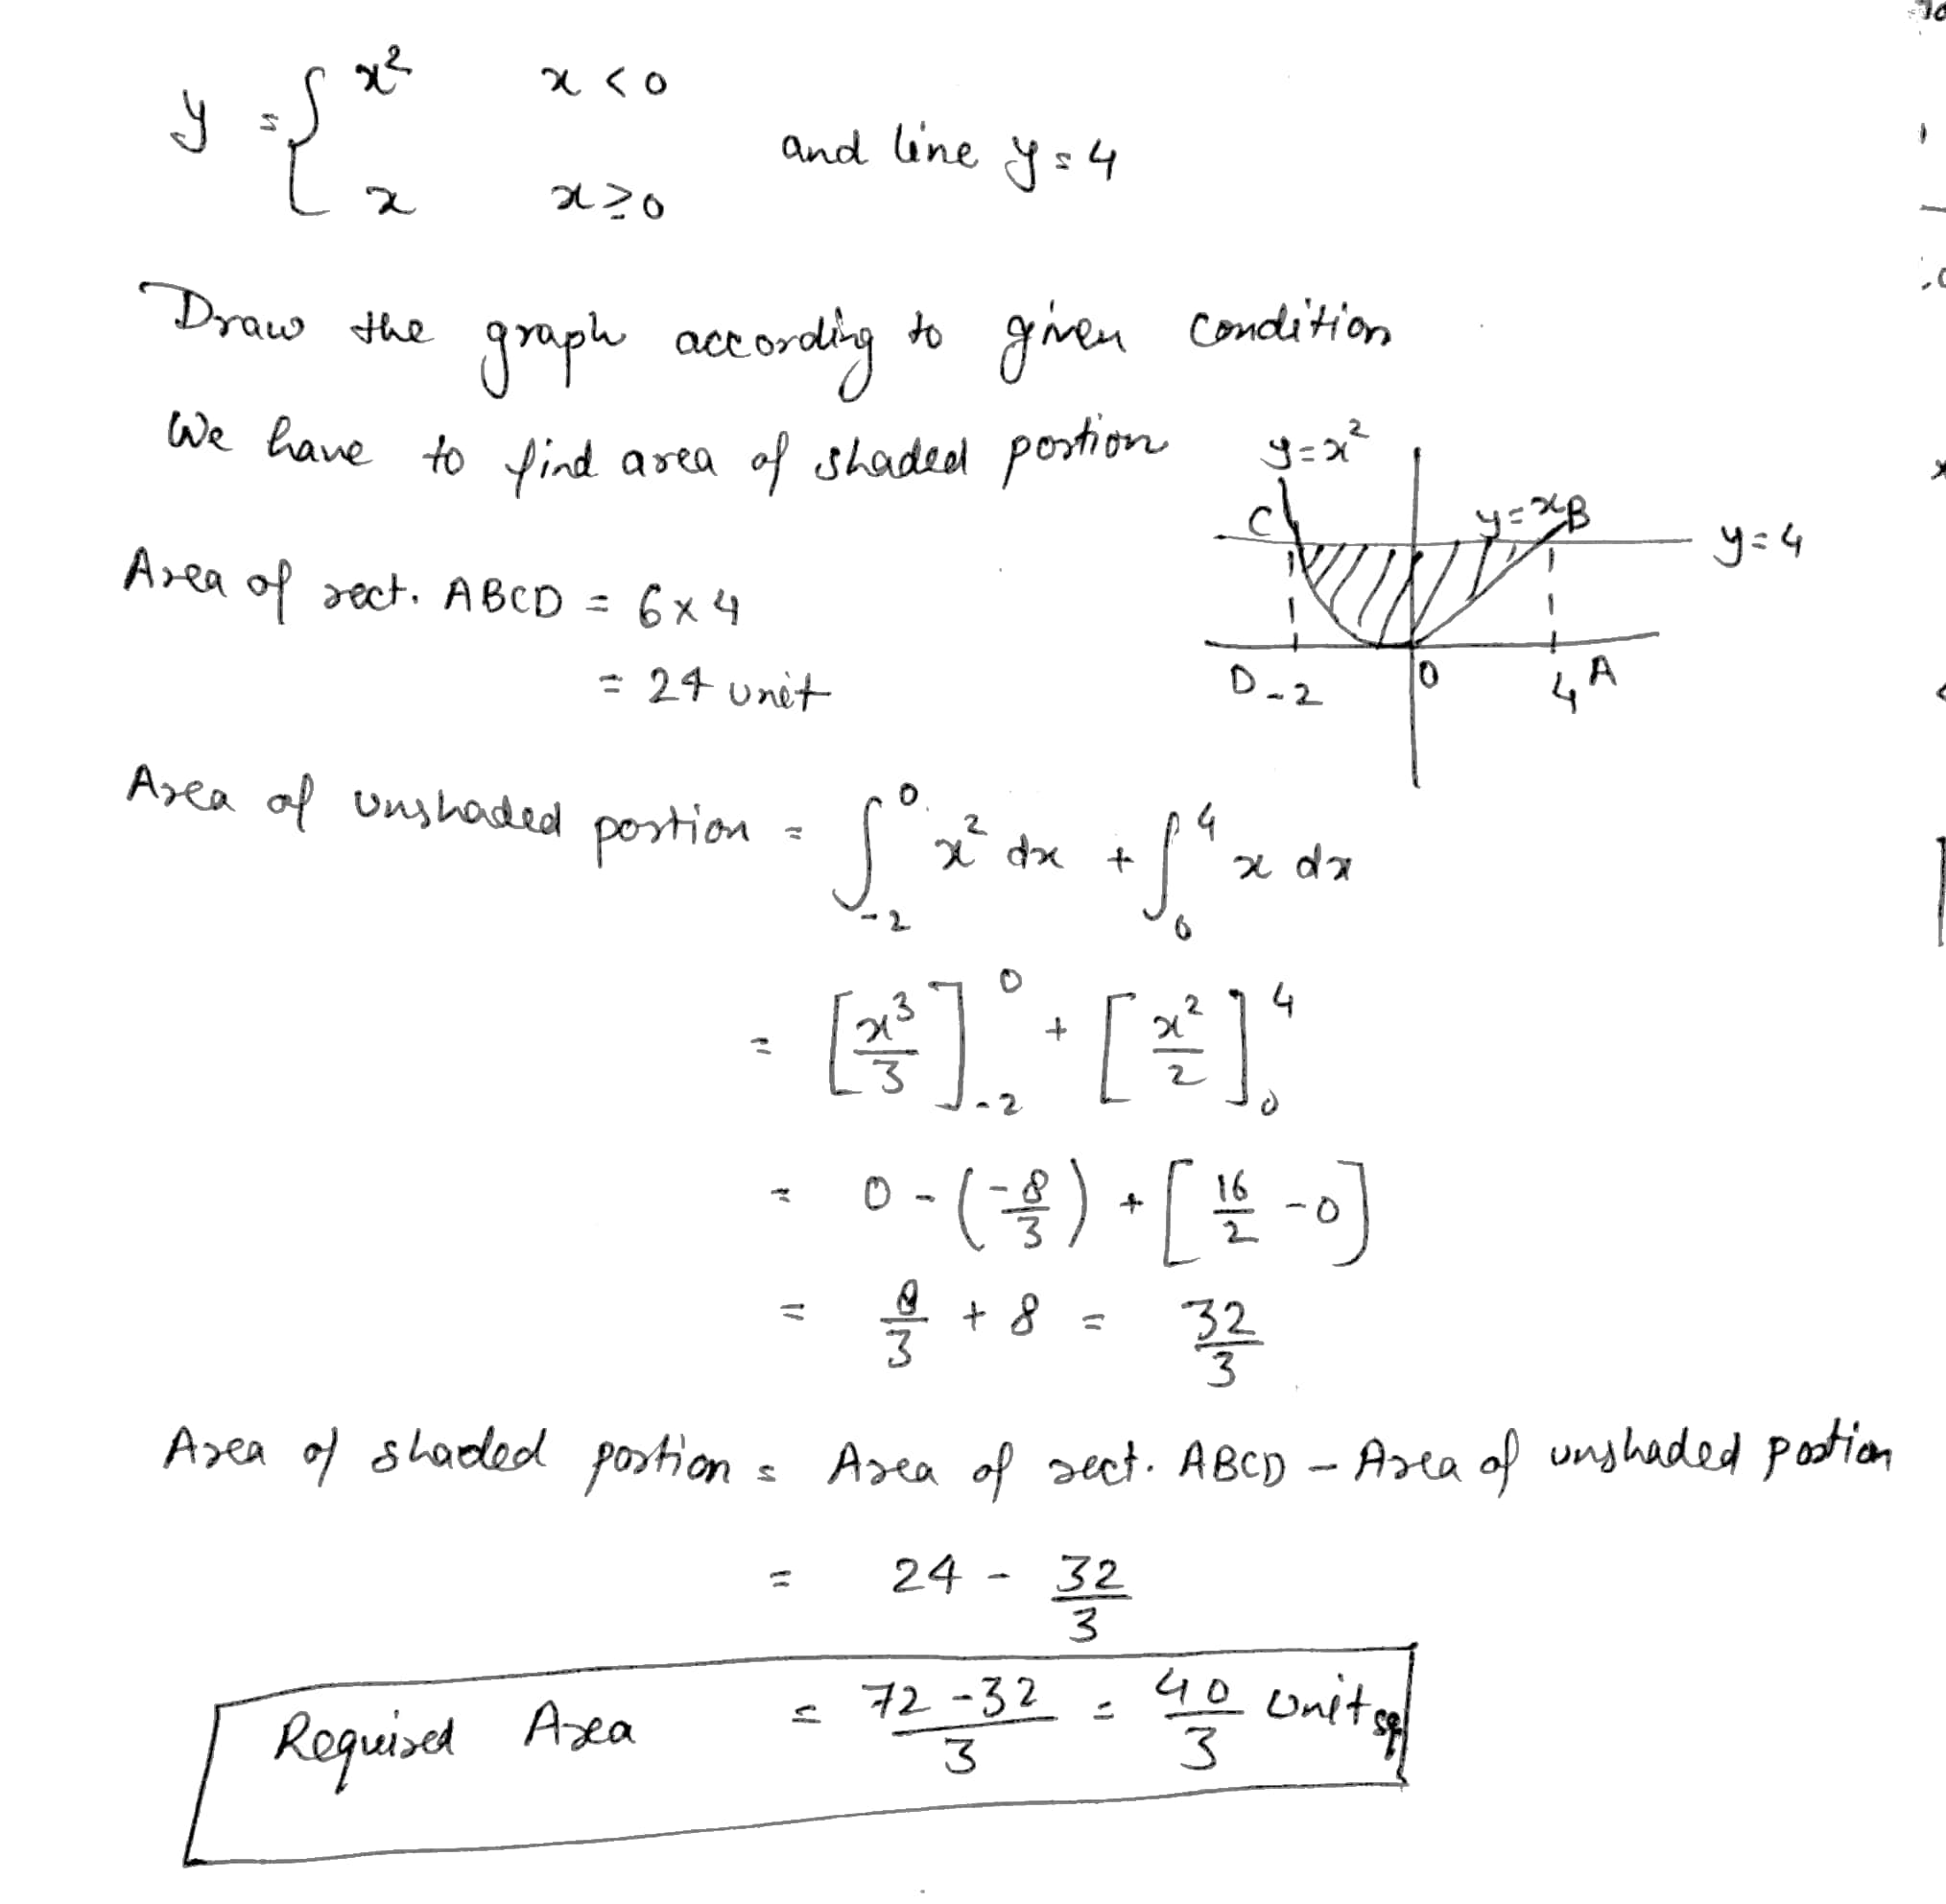 y = { x²    x < 0
x    x ≥ 0
and line y = 4
Draw the graph according to given condition
We have to find area of shaded portion
y = x²
C
y = x B
y = 4
D -2
0
4 A
Area of rect. ABCD = 6 × 4
= 24 unit
Area of unshaded portion = ∫₋₂⁰ x² dx + ∫₀⁴ x dx
= [x³/3]₋₂⁰ + [x²/2]₀⁴
= 0 - (-8/3) + [16/2 - 0]
= 8/3 + 8 = 32/3
Area of shaded portion = Area of rect. ABCD - Area of unshaded portion
= 24 - 32/3
Required Area = (72 - 32)/3 = 40/3 unit sq